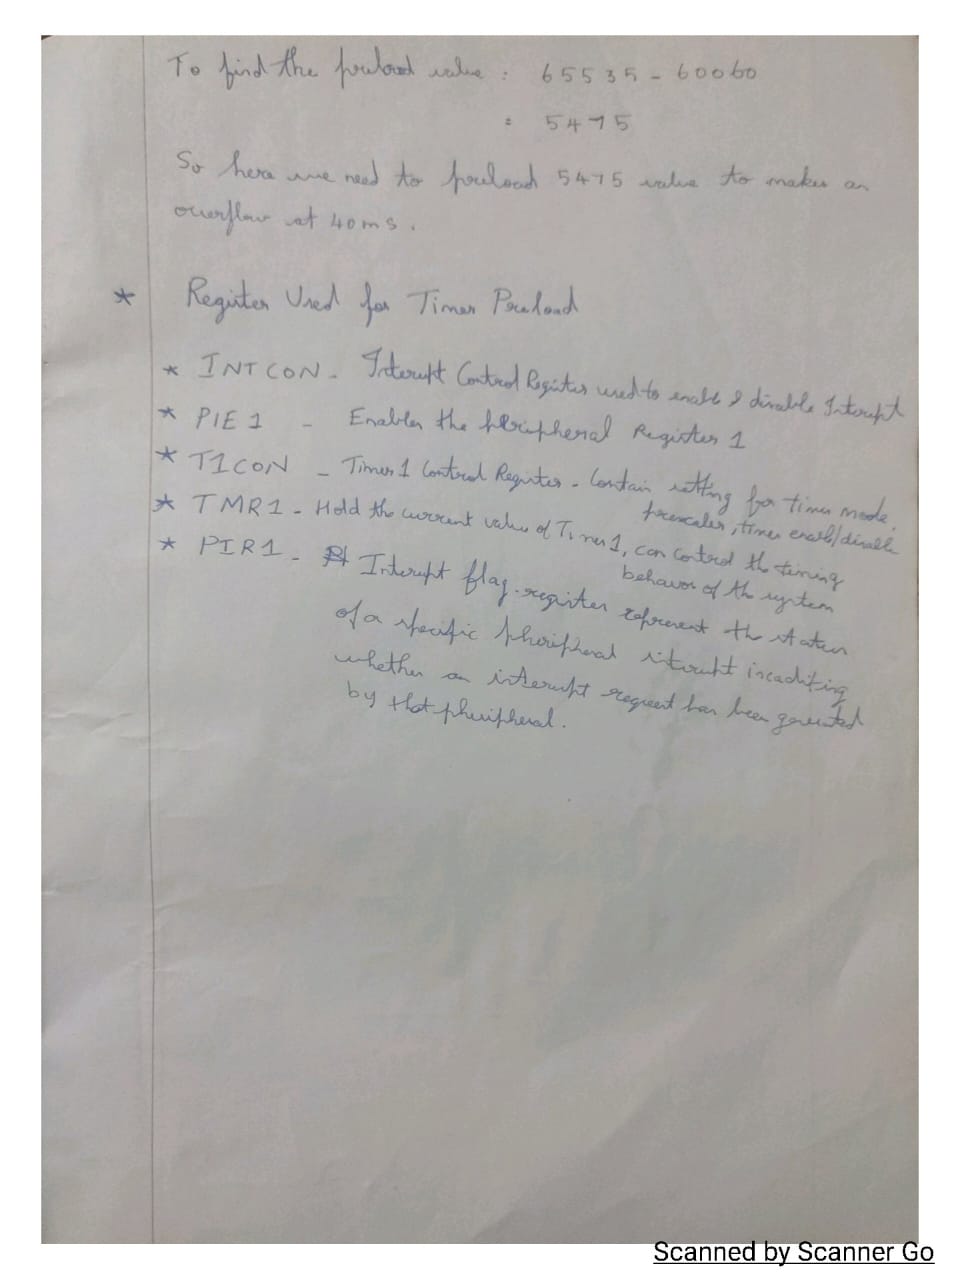 To find the preload value : 65535 - 60060
= 5475
So here we need to preload 5475 value to makes an
overflow at 40ms.
* Register Used for Timer Preload
* INTCON - Interrupt Control Register used to enable & disable Interupt
* PIE 1 - Enables the pheripheral Register 1
* T1CON - Timer 1 Control Register - Contain setting for timer mode,
prescaler, timer enable/disable
* TMR1 - Hold the current value of Timer 1, can control the timing
behavor of the system
* PIR1 - Interupt flag register represent the status
of a specific pheripheral interupt incaditing
whether an interrupt request has been generated
by that pheripheral.
Scanned by Scanner Go